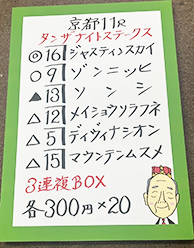 京都11R
タンザナイトステークス
◎16 ジャスティンスカイ
○9 ゾンニッヒ
▲13 ソンシ
△12 メイショウソラフネ
△5 ディヴィナシオン
△15 マウンテンムスメ
3連複BOX
各300円×20